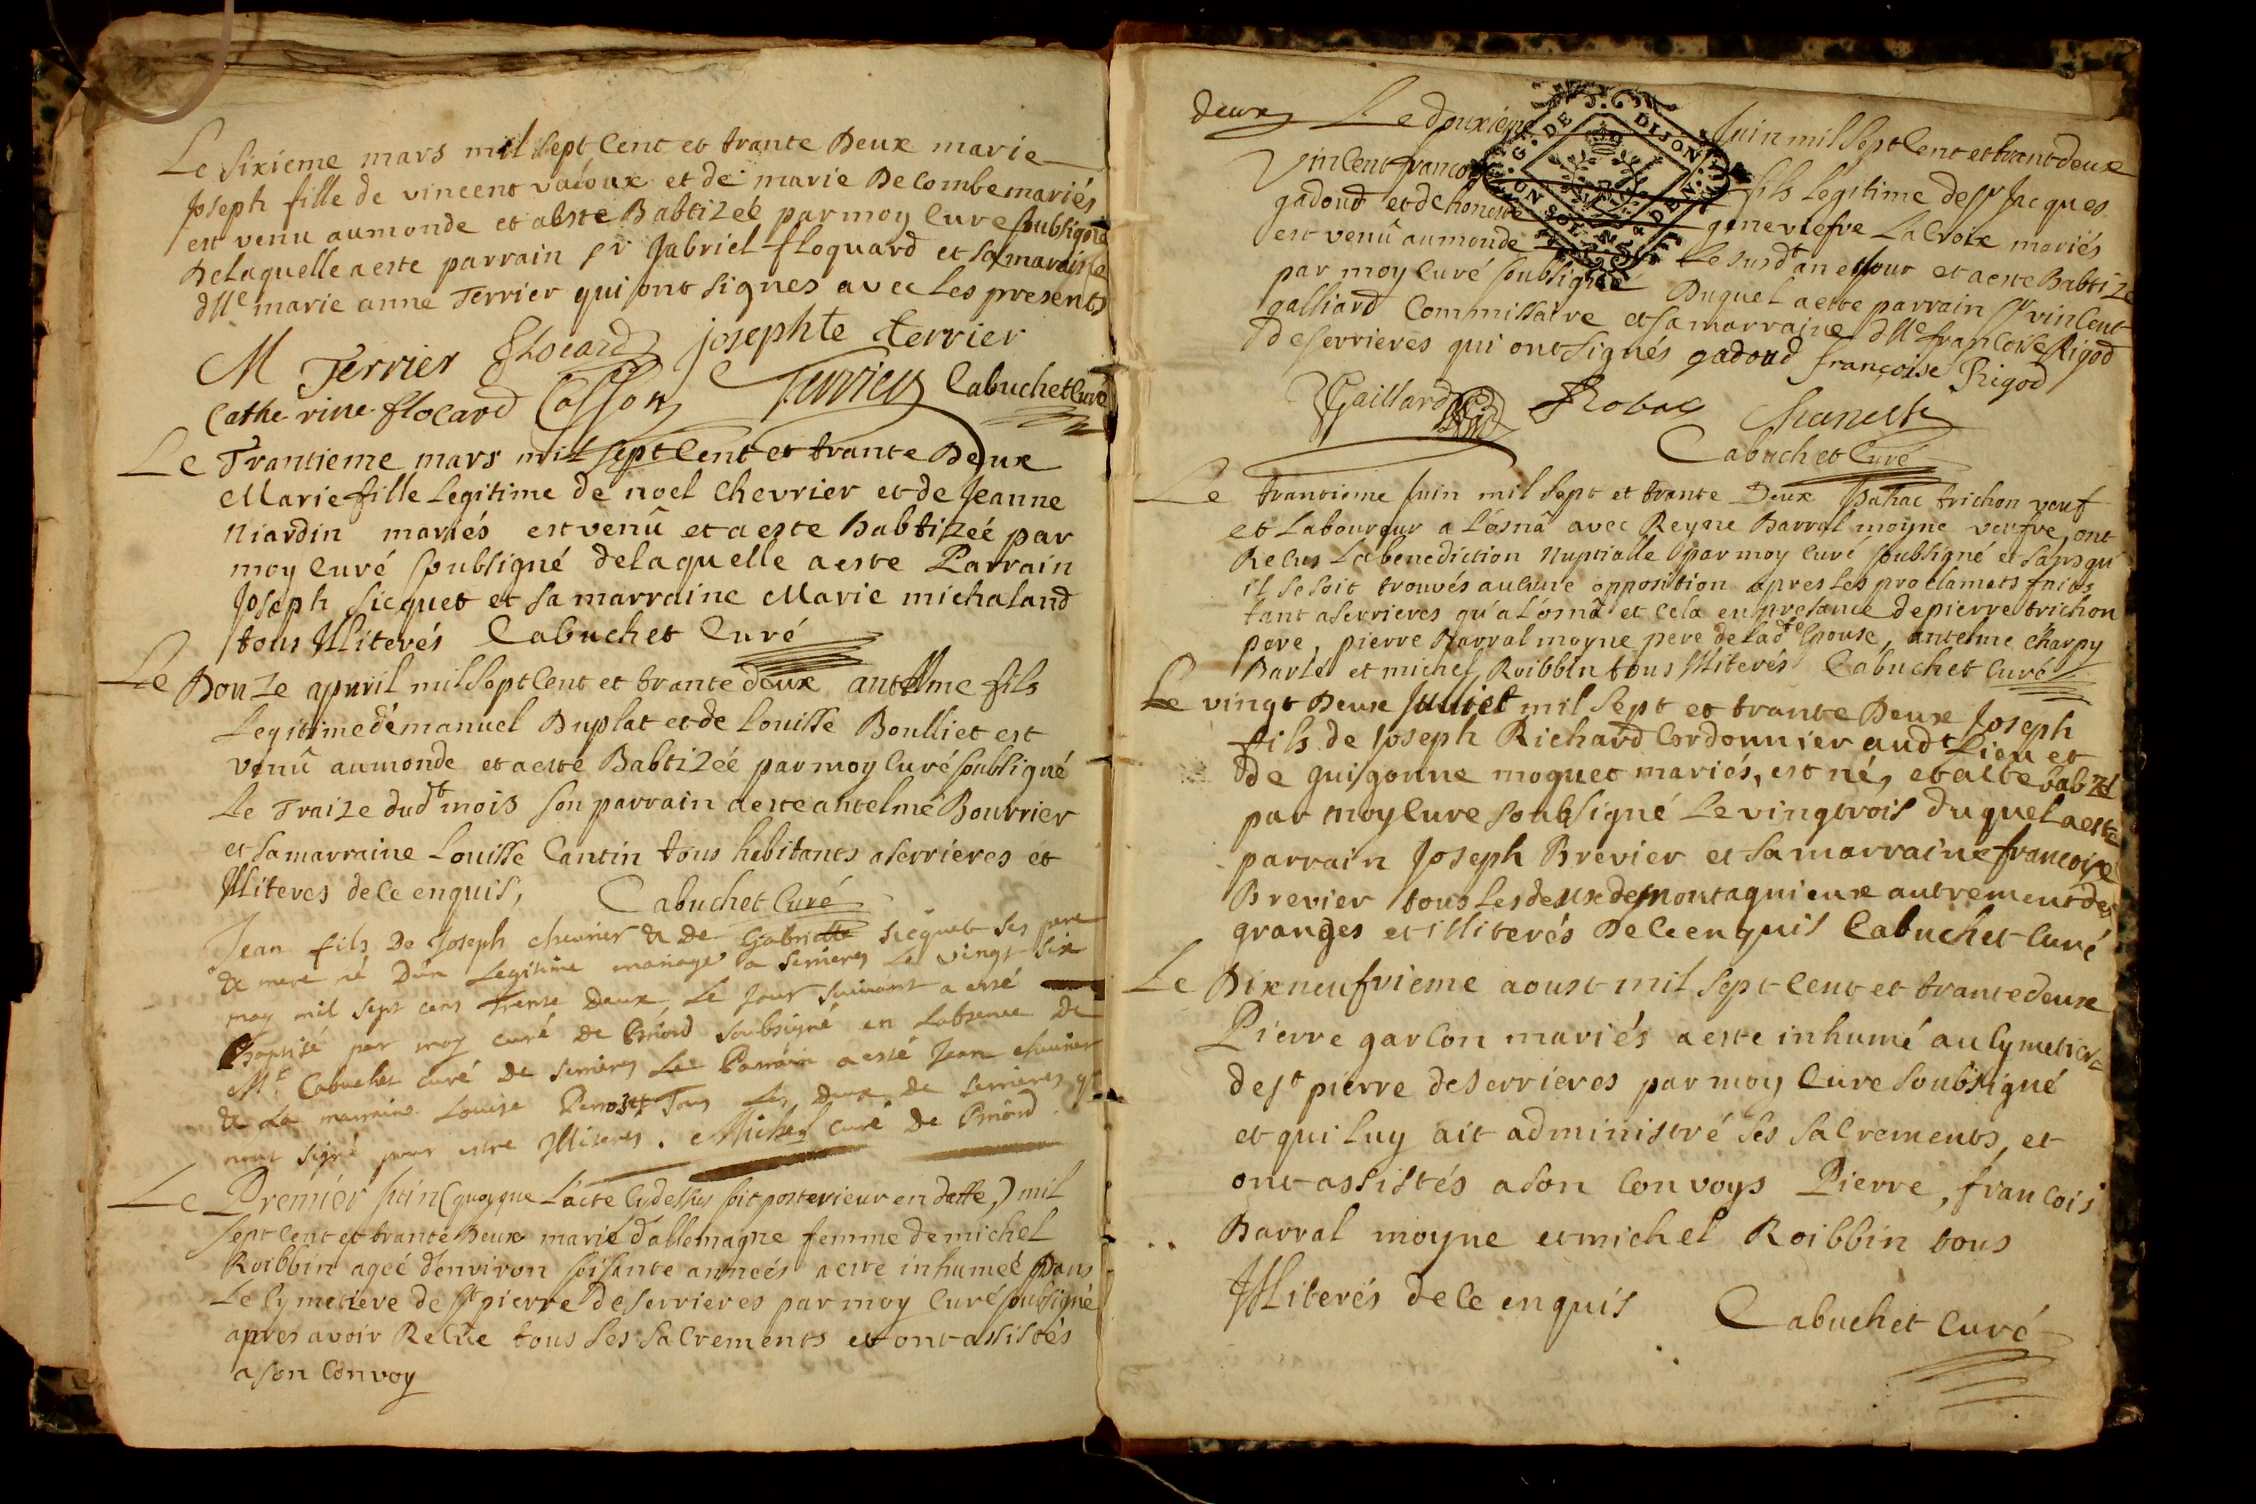 Le Sixieme mars mil sept Cent et trante Deux marie
Joseph fille de vincent vacoux et de marie Decombe mariés
est venu aumonde et a esté Babtizéé par moy Curé soubsigné
Delaquelle a este parrain sr Gabriel floquard et sa maraine
dlle marie anne Terrier qui ont signes avec Les presents
M Terrier flocard josephte terrier
Cathe rine flocard Terrier Cabuchet Curé
Le Trantieme mars mil sept Cent et trante Deux
Marie fille Legitime de noel Chevrier et de Jeanne
Niardin mariés est venû et a este Babtizeé par
moy Curé soubsigné delaquelle a este Parrain
Joseph Sicquet et sa marraine Marie michaland
tous Illiterés Cabuchet Curé
Le Douze apvril mil sept Cent et trante deux antelme fils
Legitime démanuel Duplat et de Louisse Boulliet est
venû aumonde et a esté Babtizéé par moy Curé soubsigné
Le Traize dudt mois son parrain a este antelme Bourrier
et sa marraine Louisse Cantin tous habitants a serrieres et
Illiteres de Ce enquis, Cabuchet Curé
Jean fils De Joseph chevrier & De Gabrielle Sicquet Ses pere
& mere né Dun Legitime mariage a Serrieres Le vingt Six
may mil sept cens trente Deux Le Jour Suivant a esté
Baptisé par moy curé de Briord soubsigné en Labsence De
Mr Cabuchet curé De Serrieres Le Parrain a esté Jean chevrier
& La marraine Louise Tous Les Deux De Serrieres qt
nont signé pour estre Illiterés. Michel curé De Briord
Le Premiér Juin (quoyque L'acte Cydessus soit posterieur en datte,) mil
sept Cent et trante Deux marie d'allemagne femme de michel
Roibbin ageé denviron soisante anneés a esté inhumeé Dans
Le Cymetiere de st pierre de serrieres par moy Curé soubsigné
apres avoir Recue tous Ses Sacrements et ont assistés
a son Convoy
deux Le douxieme Juin mil sept Cent et trant deux
Vincent francois fils Legitime de sr Jacques
gadoud et de honeste geneviefve La Croix mariés
est venû aumonde Le susdt an et jour et a esté Babtizé
par moy Curé soubsigné Duquel a este parrain sr vincent
galliard Commissaire et sa marraine dlle francoise Rigod
de serrieres qui ont signés gadoud françoise Rigod
Gaillard Robac
Cabuchet Curé
G. DE DIJON
Le trantieme Juin mil Sept et trante Deux trichon veuf
et Laboureur a Lôsnâ avec Reyne Barral moyne veufve, ont
Recus La benediction Nuptialle par moy Curé soubsigné et sans qu'
il se soit trouvés aucune opposition apres Les proclamats faits
tant a serrieres qu'a Lôsnâ et Cela en presance de pierre trichon
pere, pierre Barral moyne pere de ladte Epouse, antelme Charpy
Barlét et michel Roibbin tous Illiterés Cabuchet Curé
Le vingt Deux Julliet mil Sept et trante Deux Joseph
fils de Joseph Richard Cordonnier audt Lieu et
de guigonne moquet mariés, est né, et a este babzé
par moy Cure soubsigné Le vingtrois duquel a esté
parrain Joseph Brevier et sa marraine francoise
Brevier tous Les deux de montagnieux autrement des
granges et illiterés De Ce enquis Cabuchet Curé
Le Dixneufvieme aoust mil sept Cent et trante deux
Pierre garcon mariés a este inhumé au Cymetiere
de st pierre de serrieres par moy Cure soubsigné
et qui Luy ait administré Ses Sacrements, et
ont assistés a Son Convoys Pierre, francois
Barral moyne et michel Roibbin tous
Illiterés de Ce enquis Cabuchet Curé